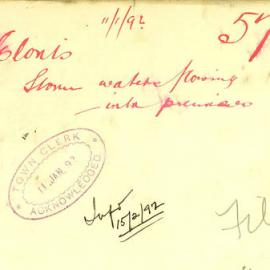 11/1/92
57
Storm waters flowing
into premises
TOWN CLERK
11 JAN. 92
ACKNOWLEDGED
15/2/92